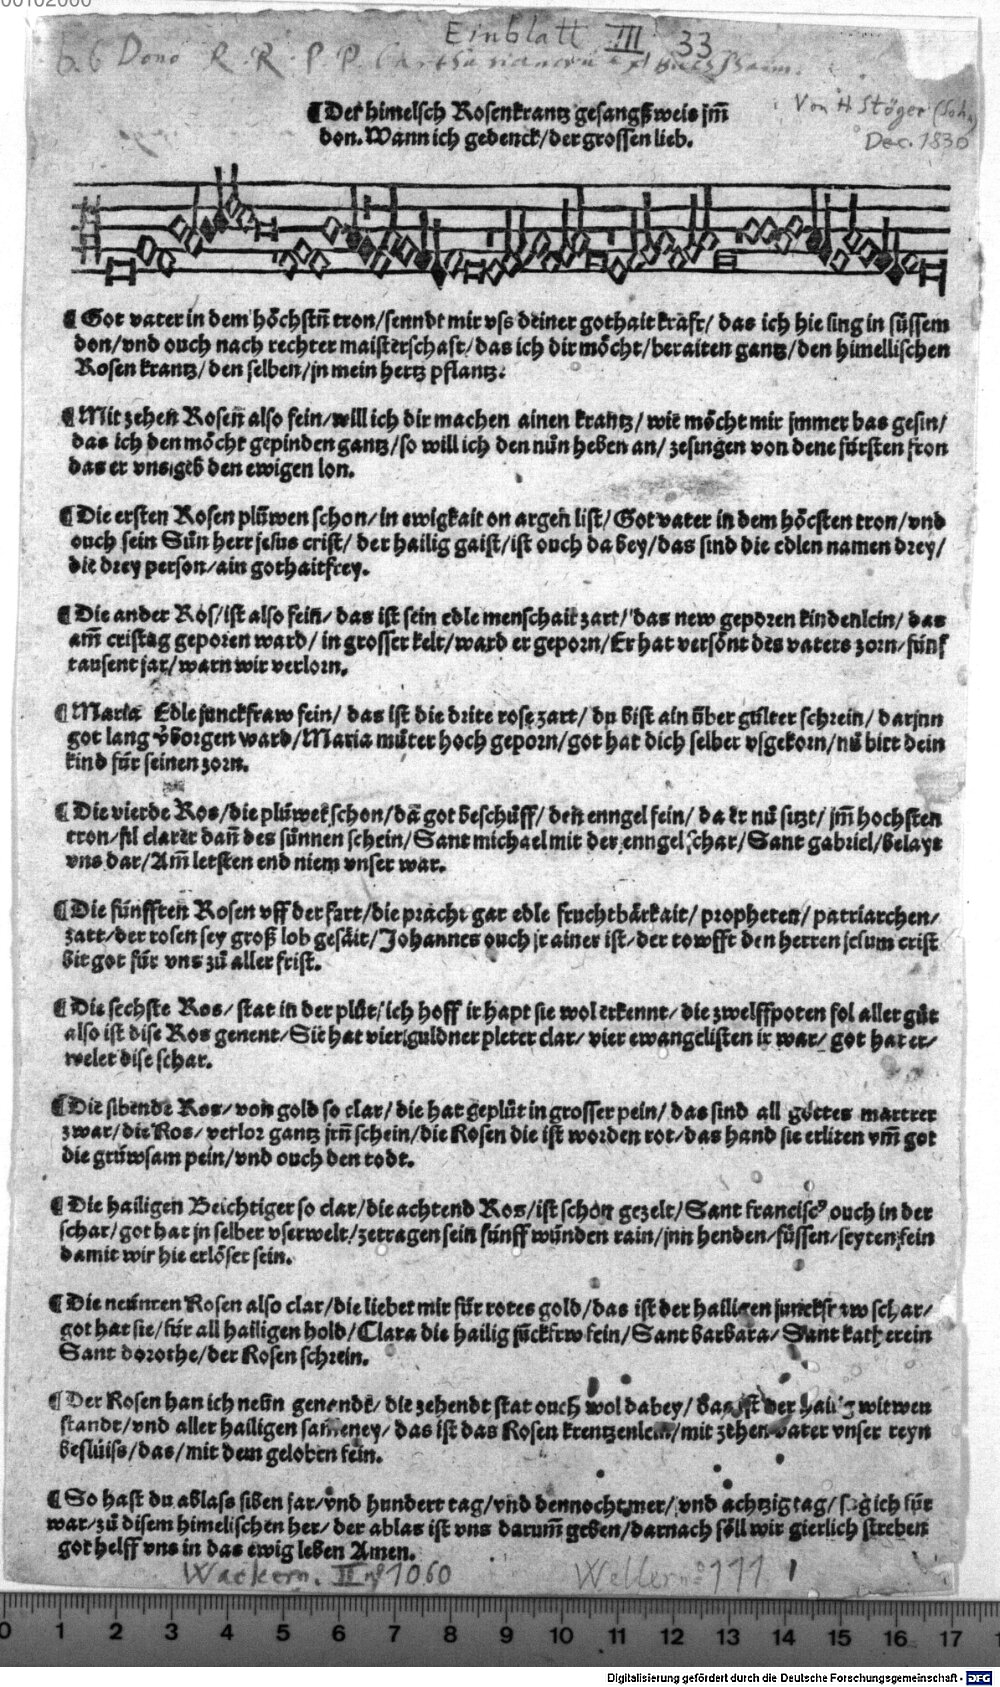 Einblatt III, 33
Von H Stöger (Soh.)
Dec. 1830
¶ Der himelsch Rosenkrantz gesangßweis jm̄
don. Wann ich gedenck/der grossen lieb.
¶ Got vater in dem höchstn̄ tron/senndt mir vſs deiner gothait kraft/ das ich hie sing in süssem
don/vnd ouch nach rechter maisterschaft/das ich dir möcht/beraiten gantz/den himellischen
Rosen krantz/den selben/jn mein hertz pflantz.
¶ Mit zehen Rosen̄ also fein/will ich dir machen ainen krantz/ wie möcht mir jmmer bas gesin/
das ich den möcht gepinden gantz/so will ich den nūn heben an/ zesingen von dene fürsten fron
das er vns geb den ewigen lon.
¶ Die ersten Rosen plüwen schon/in ewigkait on argen list/Got vater in dem höcsten tron/vnd
ouch sein Sün herr jesus crist/ der hailig gaist/ist ouch da bey/das sind die edlen namen drey/
die drey person/ain gothait frey.
¶ Die ander Ros/ist also fein/ das ist sein edle menschait zart/das new geporen kindenlein/ das
am̄ cristag geporen ward/ in grosser kelt/ward er geporn/Er hat versönt des vaters zorn/fünf
tausent jar/warn wir verlorn.
¶ Maria Edle junckfraw fein/ das ist die drite rose zart/ du bist ain über gülter schrein/ darjnn
got lang v̄borgen ward/Maria mūter hoch geporn/got hat dich selber vſgekorn/nū bitt dein
kind für seinen zorn.
¶ Die vierde Ros/die plüwet schon/da got beschüff/ den enngel fein/ da er nū sitzt/ jm̄ hochsten
tron/fil clarer dan̄ des sünnen schein/Sant michael mit der enngel schar/Sant gabriel/belayt
vns dar/Am̄ letsten end niem vnser war.
¶ Die fünfften Rosen vff der fart/die pracht gar edle fruchtbärkait/ propheten/ patriarchen/
zart/der rosen sey groß lob gesäit/Johannes ouch jr ainer ist/der towfft den herren jesum crist
bit got für vns zū aller frist.
¶ Die sechste Ros/ stat in der plūt/ich hoff ir hapt sie wol erkennt/ die zwelffpoten fol aller gūt
also ist dise Ros genent/Sie hat vier guldner pleter clar/ vier ewangelisten ir war/ got hat er/
welet dise schar.
¶ Die sibende Ros/von gold so clar/die hat geplūt in grosser pein/ das sind all gottes martrer
zwar/die Ros/ verlor gantz jrn̄ schein/die Rosen die ist worden rot/das hand sie erliten vm̄ got
die grüwsam pein/vnd ouch den todt.
¶ Die hailigen Beichtiger so clar/die achtend Ros/ist schon gezelt/Sant francisc⁹ ouch in der
schar/got hat jn selber vserwelt/zetragen sein fünff wunden rain/jnn henden/füssen/seyten fein
damit wir hie erlöset sein.
¶ Die neünten Rosen also clar/die liebet mir für rotes gold/das ist der hailigen junckfraw schar/
got hat sie/für all hailigen hold/Clara die hailig jūckfrw fein/Sant barbara/ Sant katherein
Sant dorothe/der Rosen schrein.
¶ Der Rosen han ich neün genendt/ die zehendt stat ouch wol dabey/ das ist der hailig witwen
standt/vnd aller hailigen sameney/das ist das Rosen krentzenlein/mit zehen vater vnser reyn
beslüiss/das/mit dem geloben fein.
¶ So hast du ablass siben jar/vnd hundert tag/vnd dennocht mer/ vnd achtzig tag/ sag ich für
war/zū disem himelischen her/ der ablas ist vns darum̄ geben/darnach söll wir gierlich streben
got helff vns in das ewig leben Amen.
Wackern. II nº 1060
Weller nº 111
0 1 2 3 4 5 6 7 8 9 10 11 12 13 14 15 16 17
Digitalisierung gefördert durch die Deutsche Forschungsgemeinschaft - DFG